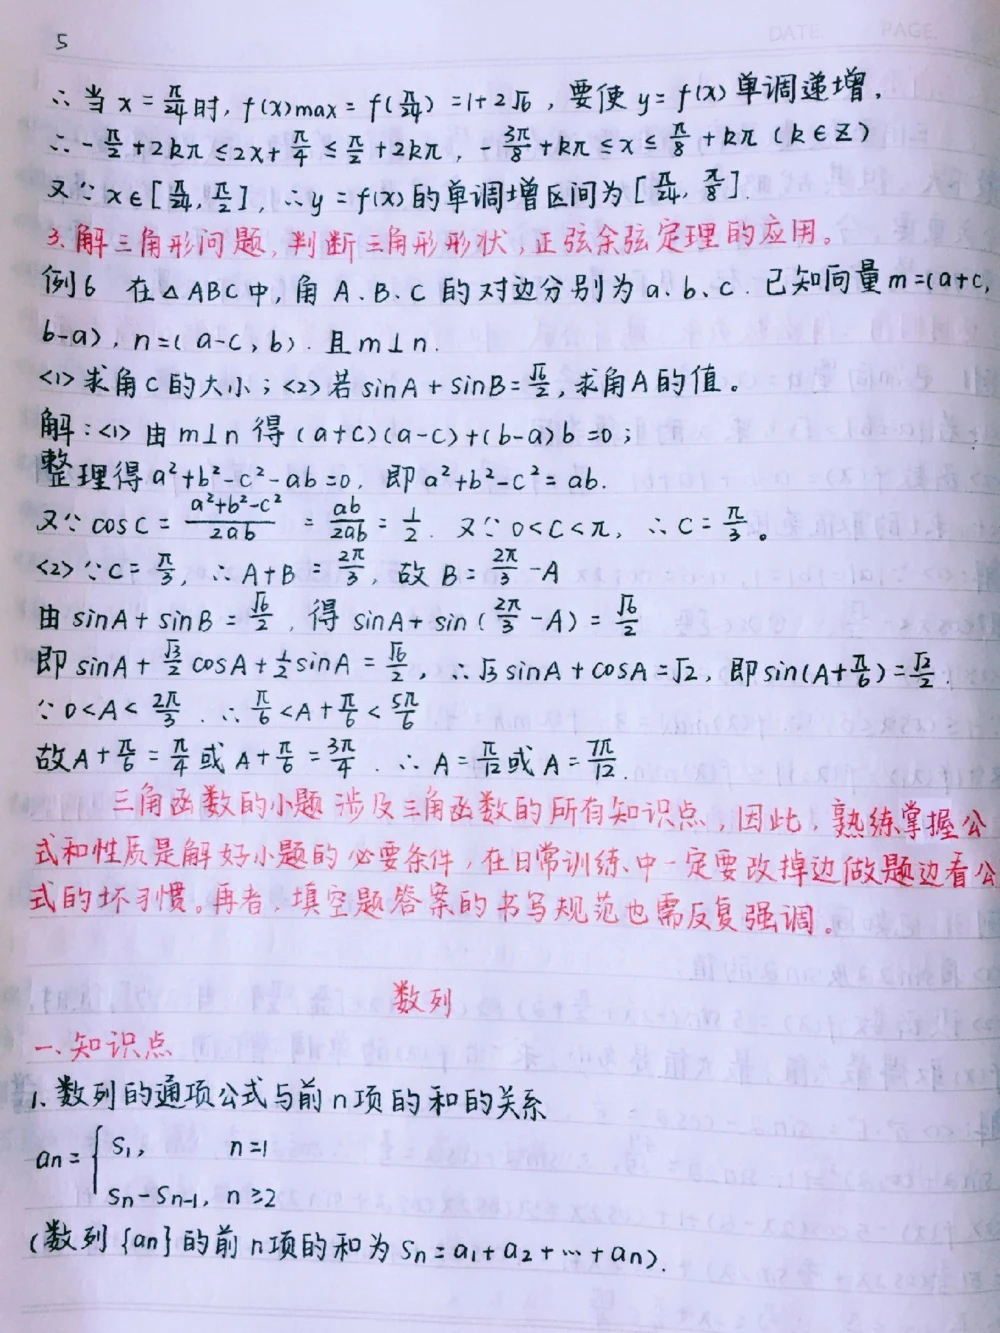 DATE PAGE.
5
∴当 x = π/24 时, f(x)max = f(π/24) = 1+2√6, 要使 y = f(x) 单调递增,
∴ -π/2 + 2kπ ≤ 2x + π/4 ≤ π/2 + 2kπ, -3π/8 + kπ ≤ x ≤ π/8 + kπ (k∈Z)
又∵ x∈[π/24, π/2], ∴ y = f(x) 的单调增区间为 [π/24, π/8].
3. 解三角形问题, 判断三角形形状, 正弦余弦定理的应用。
例6 在△ABC中, 角 A、B、C 的对边分别为 a、b、c. 已知向量 m=(a+c,
b-a), n=(a-c, b). 且 m⊥n.
<1> 求角C的大小; <2> 若 sinA + sinB = √6/2, 求角A的值。
解: <1> 由 m⊥n 得 (a+c)(a-c)+(b-a)b=0;
整理得 a²+b²-c²-ab=0, 即 a²+b²-c²=ab.
又∵ cosC = (a²+b²-c²)/2ab = ab/2ab = 1/2. 又∵ 0<C<π, ∴ C = π/3。
<2> ∵ C = π/3, ∴ A+B = 2π/3, 故 B = 2π/3 - A
由 sinA + sinB = √6/2, 得 sinA + sin(2π/3 - A) = √6/2
即 sinA + √3/2 cosA + 1/2 sinA = √6/2, ∴ √3 sinA + cosA = √2, 即 sin(A+π/6) = √2/2.
∵ 0<A<2π/3. ∴ π/6 < A+π/6 < 5π/6
故 A + π/6 = π/4 或 A + π/6 = 3π/4. ∴ A = π/12 或 A = 7π/12.
三角函数的小题涉及三角函数的所有知识点, 因此, 熟练掌握公
式和性质是解好小题的必要条件, 在日常训练中一定要改掉边做题边看公
式的坏习惯。再者, 填空题答案的书写规范也需反复强调。
数列
一. 知识点
1. 数列的通项公式与前n项的和的关系
an = { S1, n=1
Sn-Sn-1, n≥2
(数列{an}的前n项的和为 Sn=a1+a2+…+an).